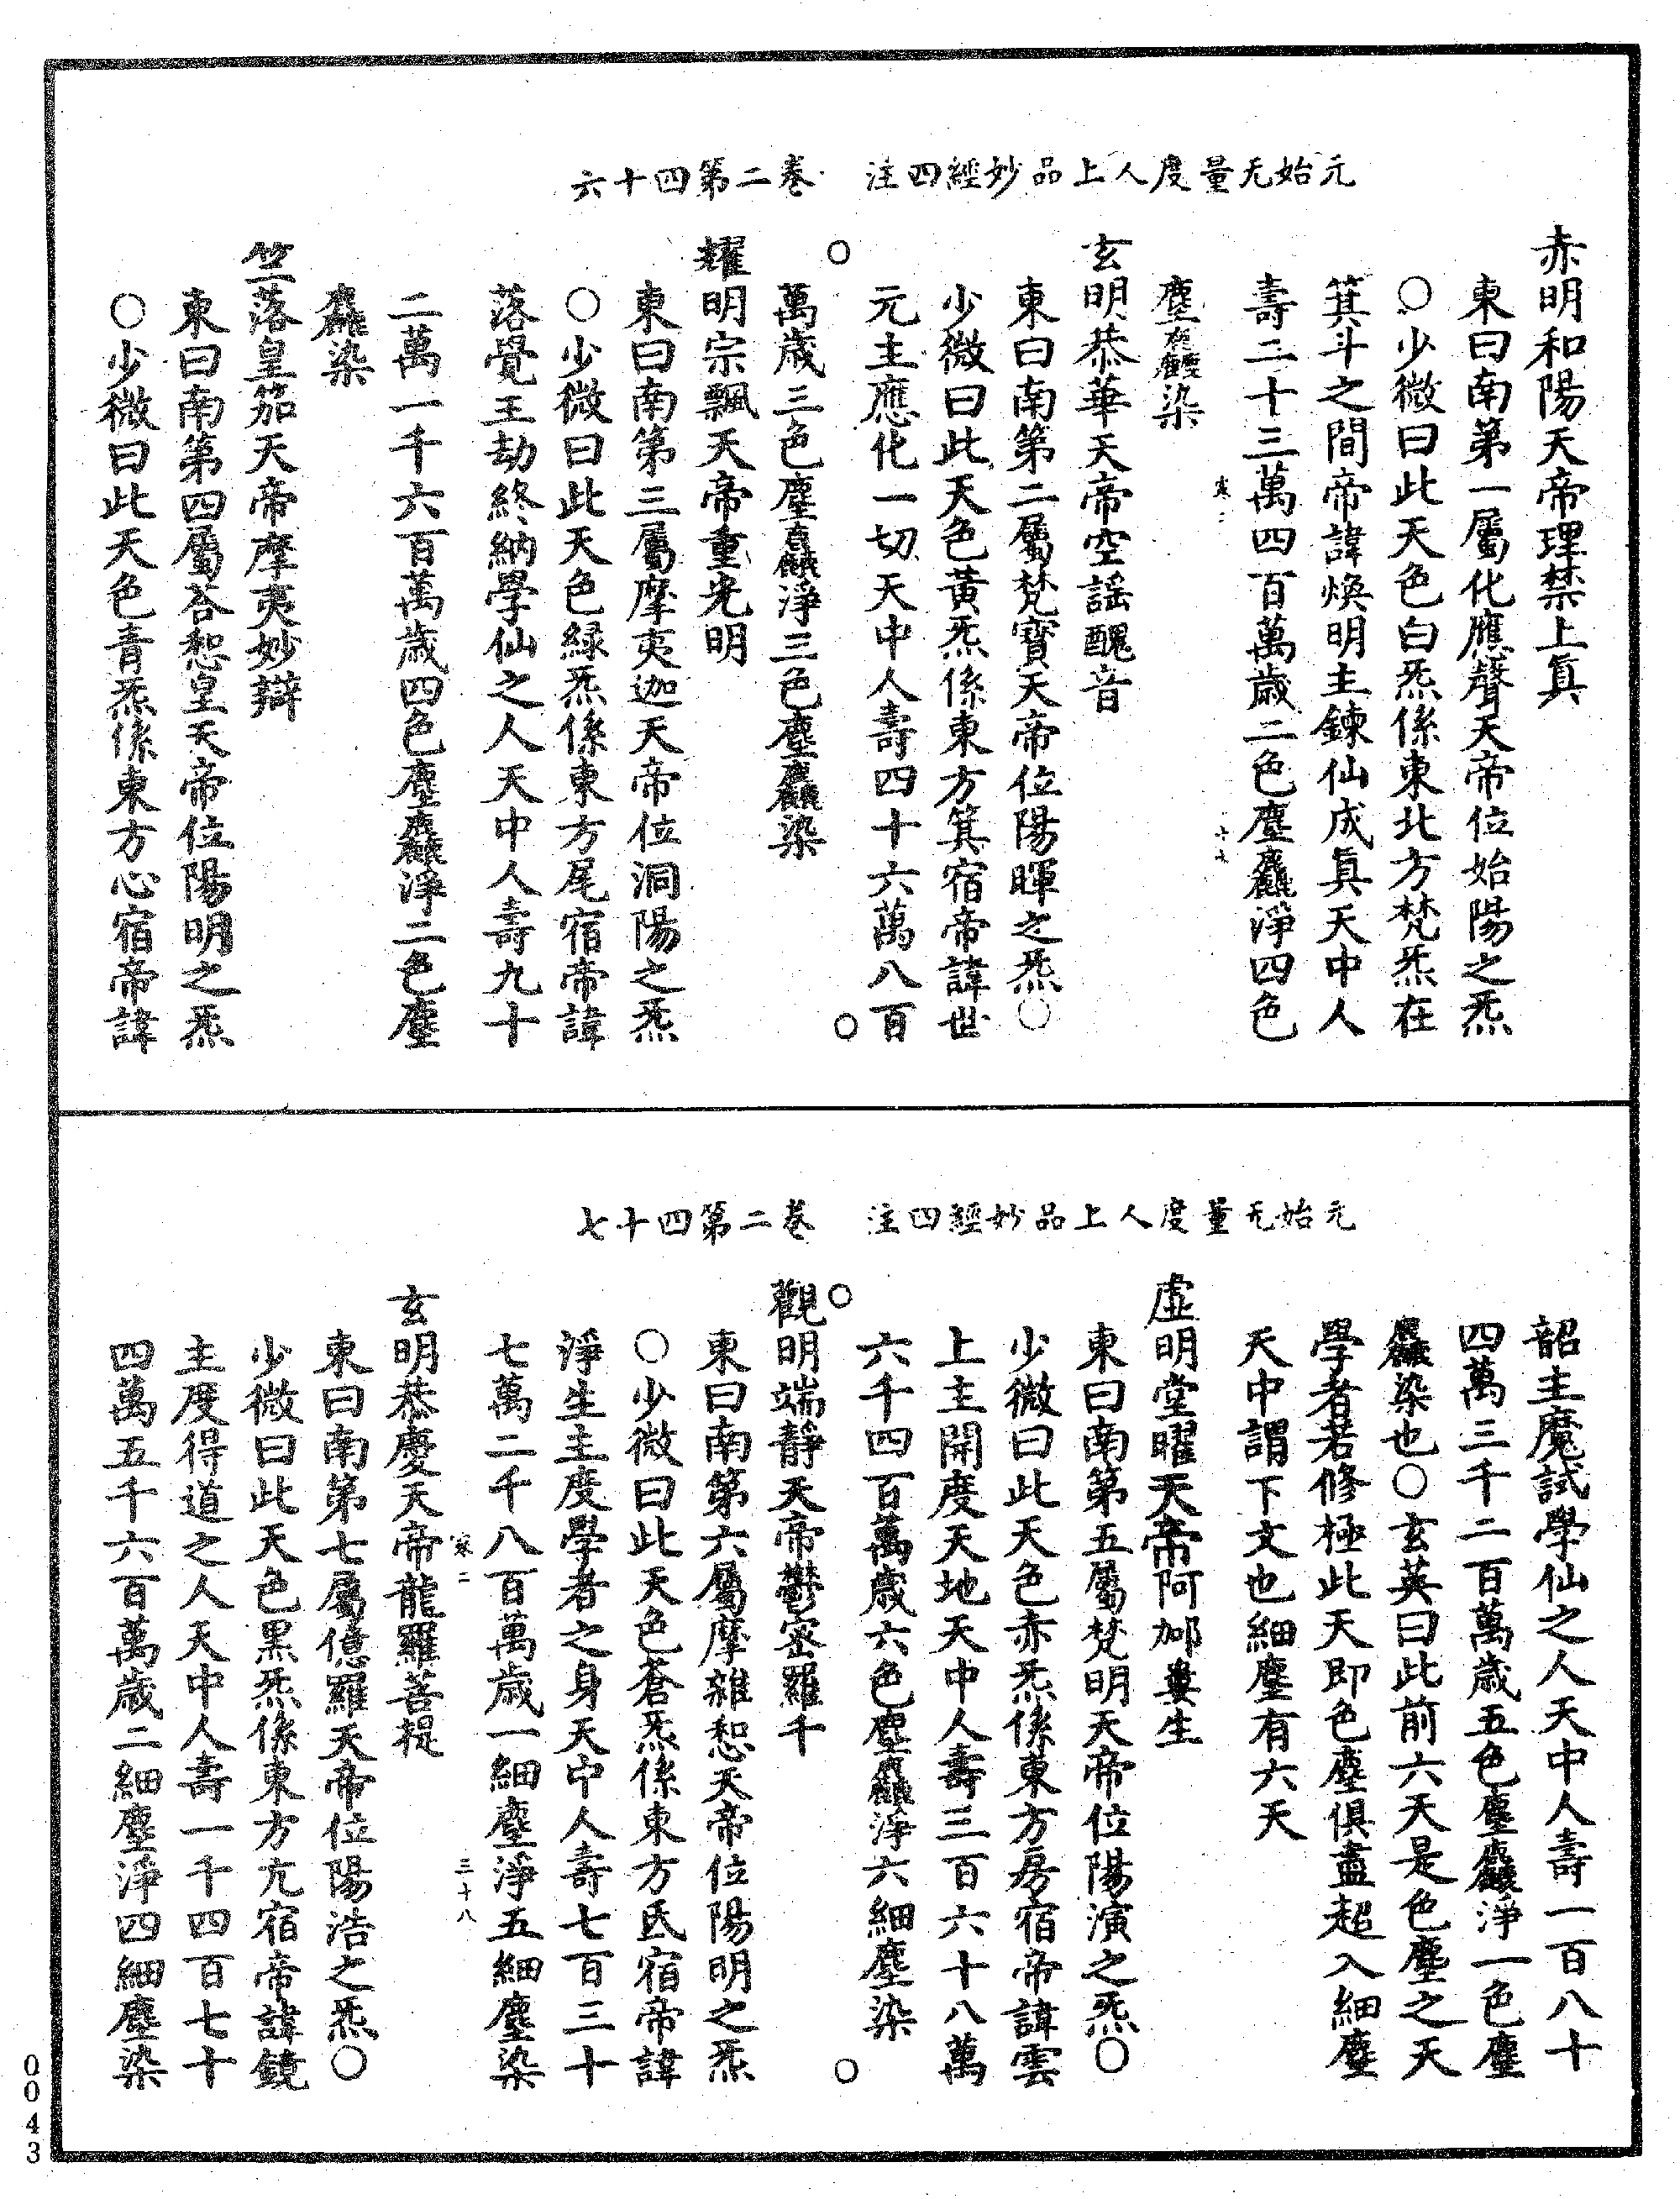 元始无量度人上品妙經四注　卷二第四十六
赤明和陽天帝理禁上真
東曰南第一屬化應聲天帝位始陽之炁
○少微曰此天色白炁係東北方梵炁在
箕斗之間帝諱煥明主鍊仙成真天中人
壽二十三萬四百萬歲二色塵麤淨四色
塵麤染
玄明恭華天帝空謠醜音
東曰南第二屬梵寶天帝位陽暉之炁○
少微曰此天色黃炁係東方箕宿帝諱世
元主應化一切天中人壽四十六萬八百
萬歲三色塵麤淨三色塵麤染
耀明宗飄天帝重光明
東曰南第三屬摩夷迦天帝位洞陽之炁
○少微曰此天色緑炁係東方尾宿帝諱
落覺王劫終納學仙之人天中人壽九十
二萬一千六百萬歲四色塵麤淨二色塵
麤染
竺落皇笳天帝摩夷妙辯
東曰南第四屬荅恕皇天帝位陽明之炁
○少微曰此天色青炁係東方心宿帝諱
元始无量度人上品妙經四注　卷二第四十七
韶主魔試學仙之人天中人壽一百八十
四萬三千二百萬歲五色塵麤淨一色塵
麤染也○玄英曰此前六天是色塵之天
學者若修極此天即色塵俱盡超入細塵
天中謂下文也細塵有六天
虛明堂曜天帝阿𨚗婁生
東曰南第五屬梵明天帝位陽演之炁○
少微曰此天色赤炁係東方房宿帝諱雲
上主開度天地天中人壽三百六十八萬
六千四百萬歲六色塵麤淨六細塵染
觀明端靜天帝鬱密羅千
東曰南第六屬摩雜恕天帝位陽明之炁
○少微曰此天色蒼炁係東方氐宿帝諱
淨生主度學者之身天中人壽七百三十
七萬二千八百萬歲一細塵淨五細塵染
寒二　三十八
玄明恭慶天帝龍羅菩提
東曰南第七屬億羅天帝位陽浩之炁○
少微曰此天色黑炁係東方亢宿帝諱鏡
主度得道之人天中人壽一千四百七十
四萬五千六百萬歲二細塵淨四細塵染
0043